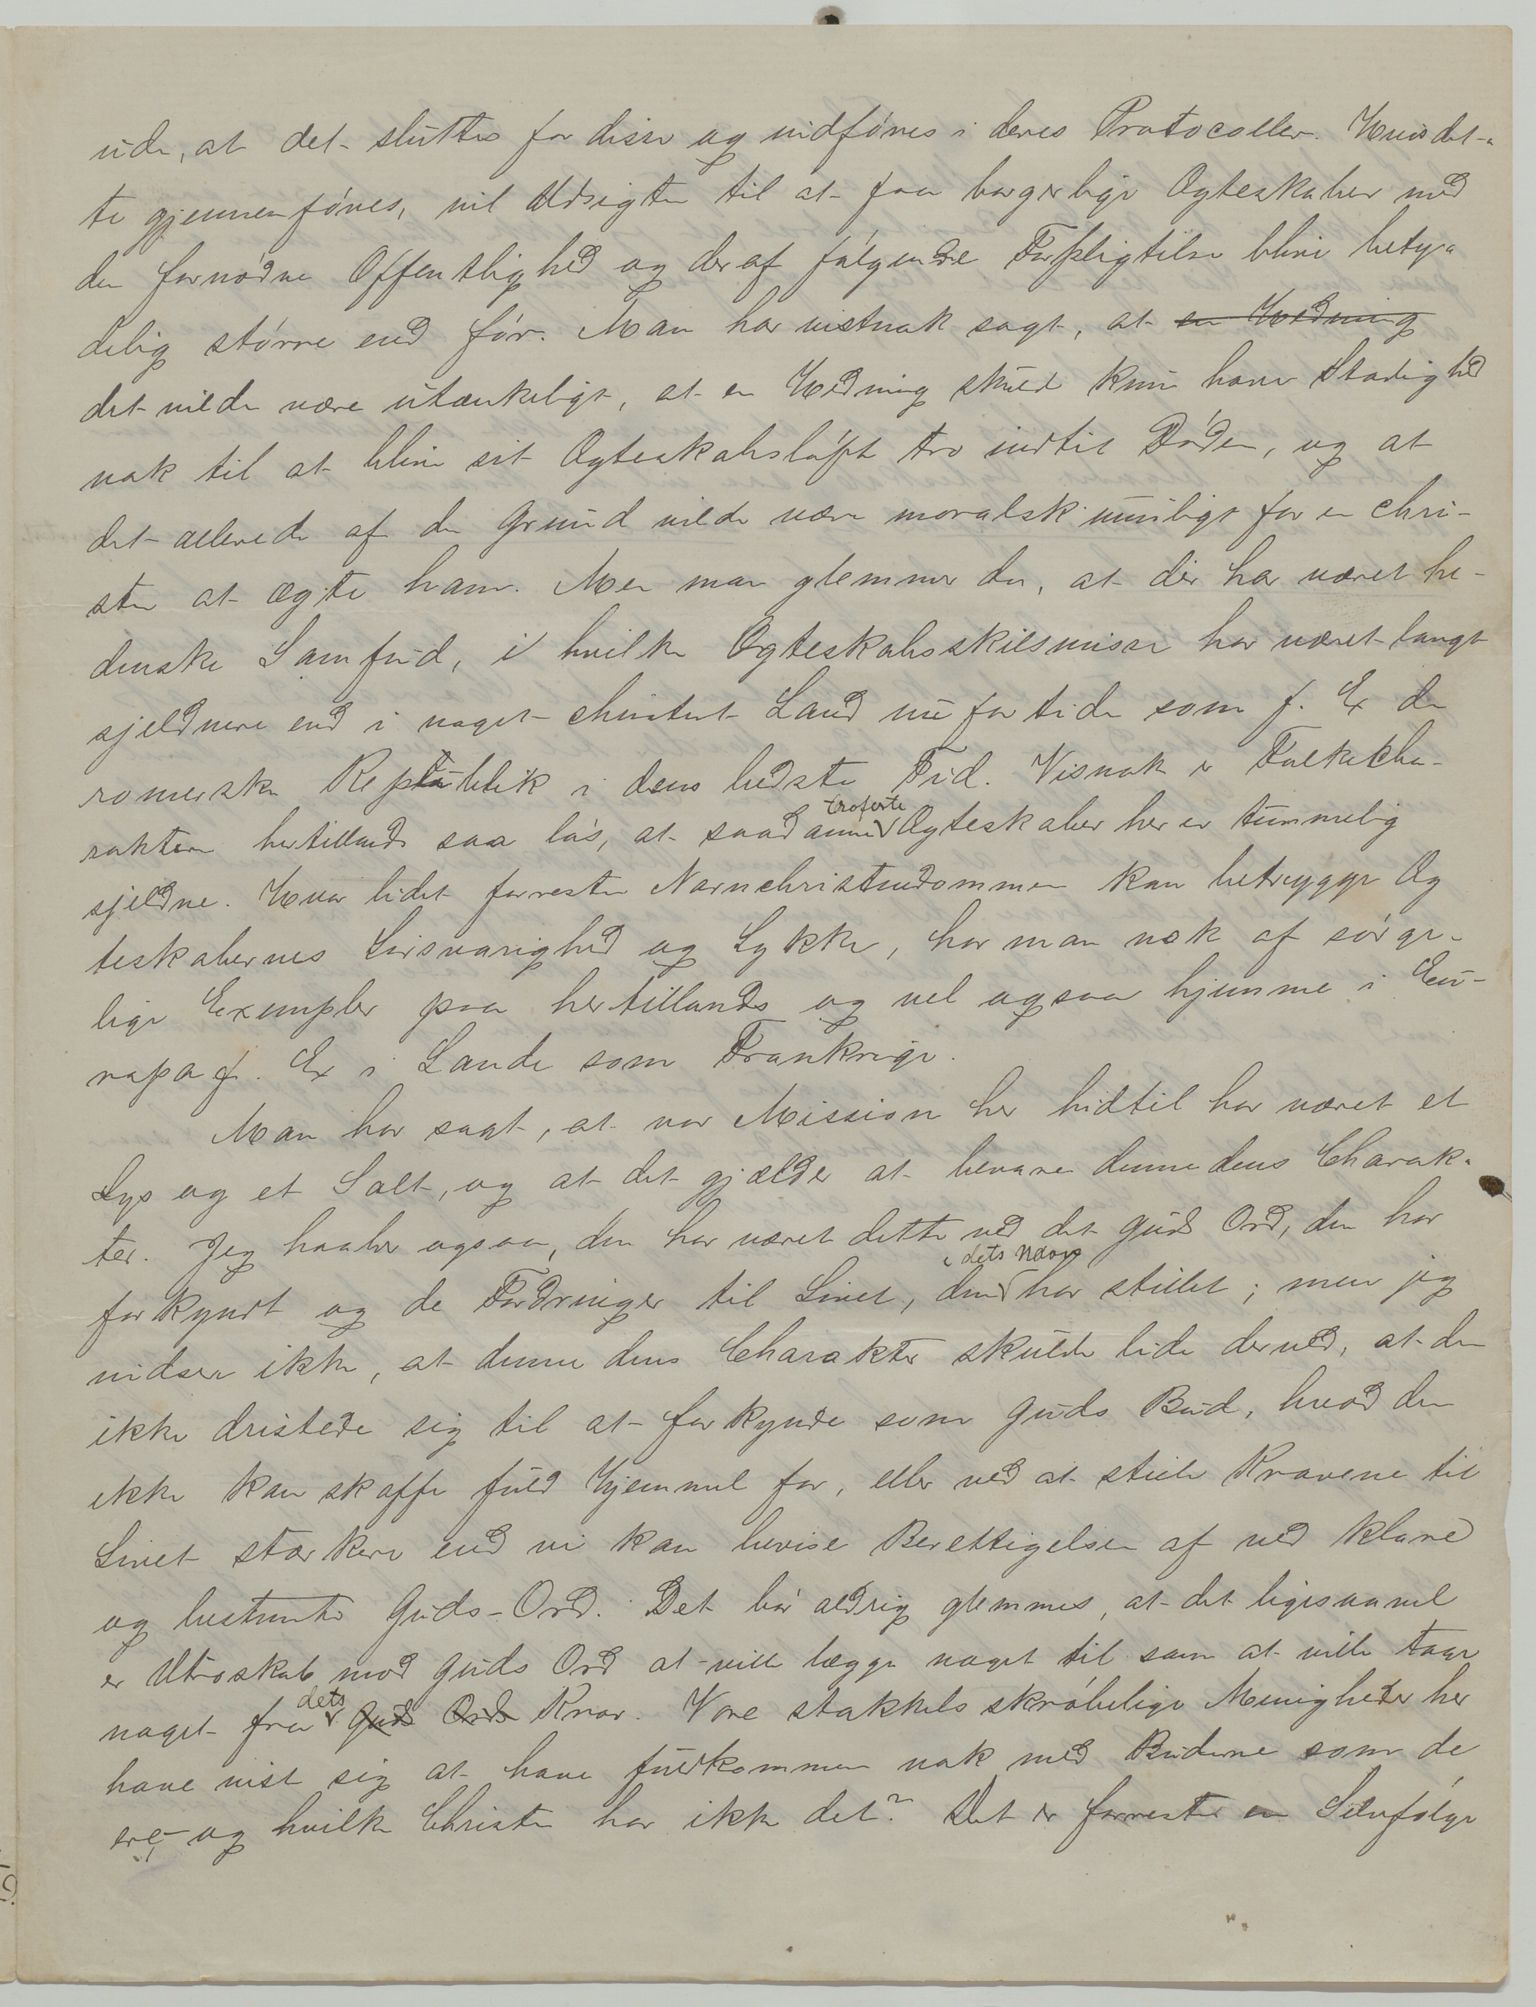 ude, at det sluttes for disse og indføres i deres Protocoller. Hvis det-
te gjennemføres, vil Udsigten til at faa borgerlige Ægteskaber med
den fornødne Offentlighed og deraf følgende Forpligtelse blive bety-
delig større end før. Man har vistnok sagt, at en Hedning
det vilde være utænkeligt, at en Hedning skulde kun have Stadighed
nok til at blive sit Ægteskabsløfte tro indtil Døden, og at
det allerede af den Grund vilde være moralsk umuligt for en Chri-
sten at ægte ham. Men man glemmer da, at der har været he-
denske Samfund, i hvilke Ægteskabsskilsmisse har været langt
sjeldnere end i noget christent Land nu for tiden som f. Ex den
romerske Republik i dens bedste Tid. Visnok er Folkecha-
rakteren hertillands saa løs, at saadanne trofaste Ægteskaber her er temmelig
sjeldne. Hvor lidet forresten Navnchristendommen kan betrygge Æg
teskabernes Livsvarighed og Lykke, har man nok af sørge-
lige Exempler paa hertillands og vel ogsaa hjemme i Eu-
ropa f. Ex i Lande som Frankrige.
Man har sagt, at vor Mission her hidtil har været et
Lys og et Salt, og at det gjælder at bevare denne dens Charak-
ter. Jeg haaber ogsaa, den har været dette ved det Guds Ord, den har
forkyndt og de Fordringer til Livet, den i dets Navn har stillet; men jeg
indser ikke, at denne dens Charakter skulde lide derved, at den
ikke dristede sig til at forkynde som Guds Bud, hvad den
ikke kan skaffe fuld Hjemmel for, eller ved at stille Kravene til
Livet stærkere end vi kan bevise Berettigelsen af ved klare
og bestemte Guds-Ord. Det bør aldrig glemmes, at det ligesaavel
er Utroskab mod Guds Ord at ville lægge noget til som at ville tage
noget fra dets Guds Ords Krav. Vore stakkels skrøbelige Menigheder her
have vist sig at have fuldkommen nok med Budene som de
ere, - og hvilken Christen har ikke det? Det er forresten en Selvfølge